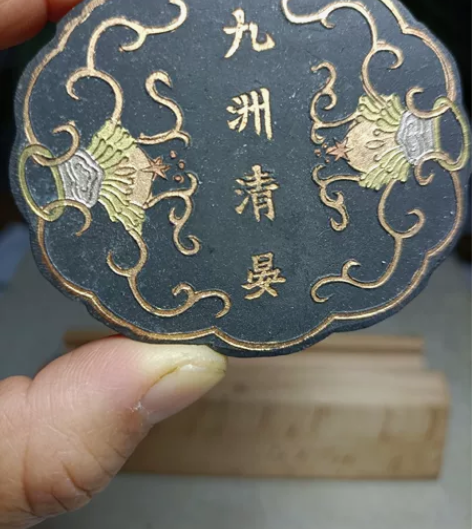 九洲清晏